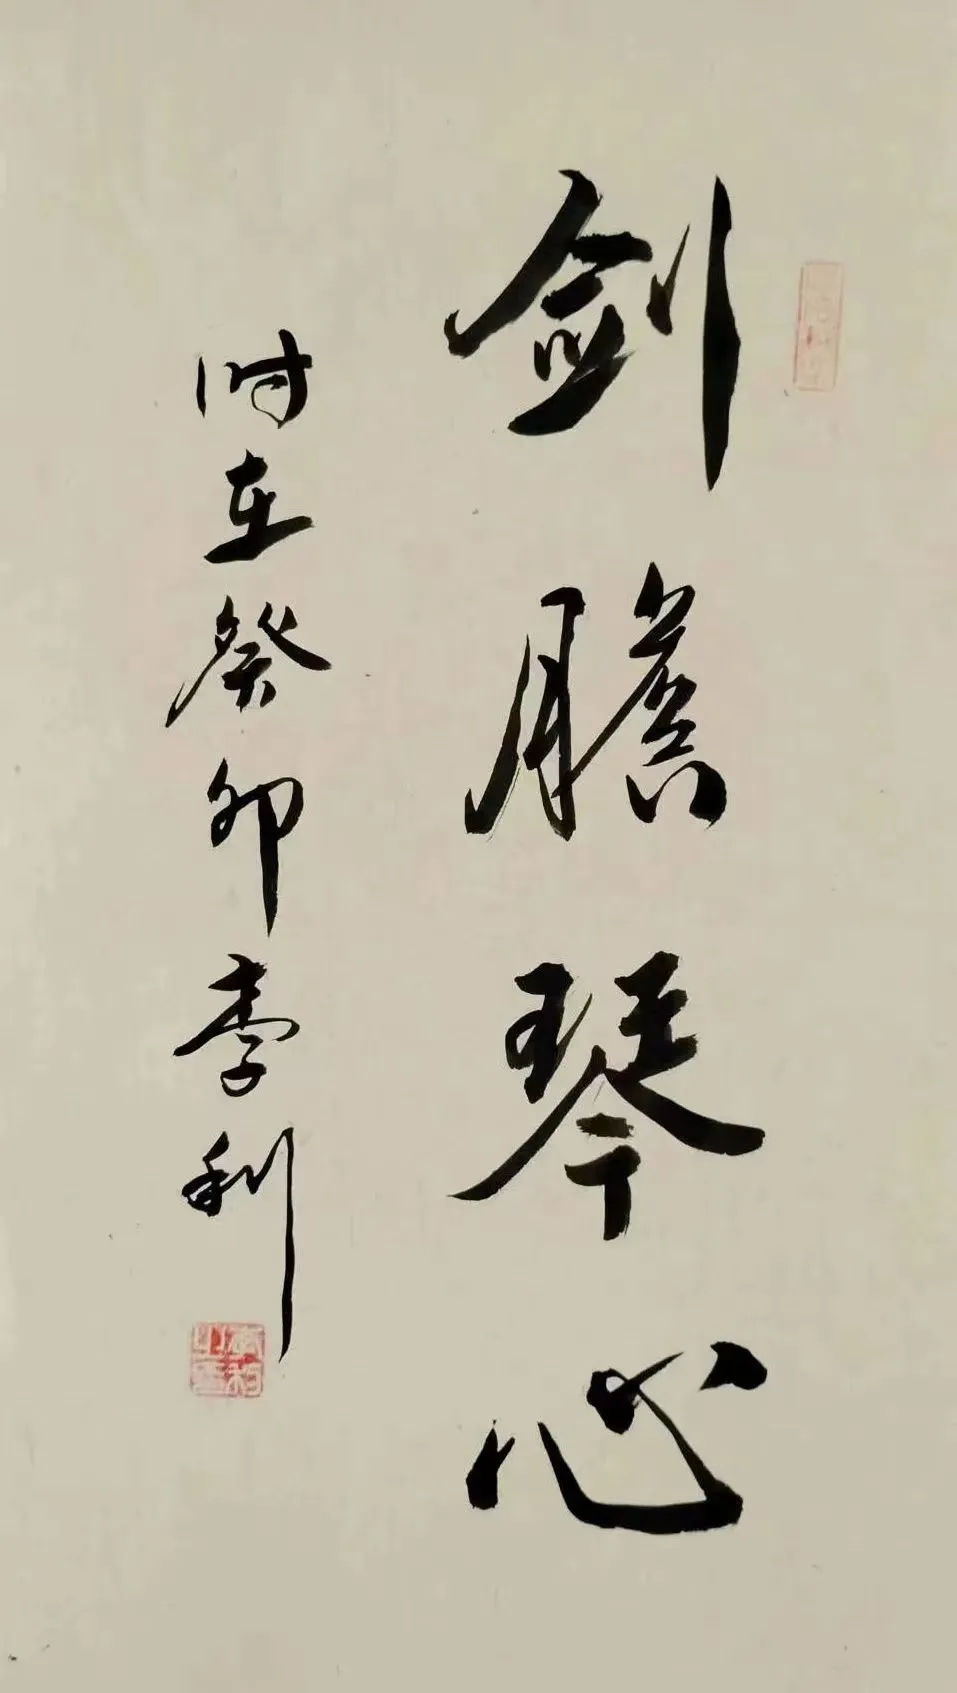 剑膽琴心
时在癸卯李利